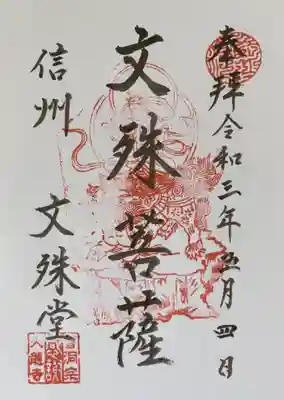 奉拝 令和三年五月四日
文殊菩薩
信州 文殊堂